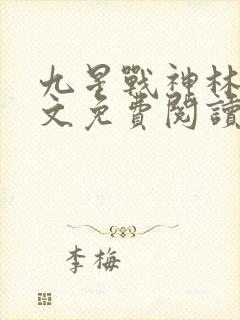 九星戰神林
文免費閱讀
李梅